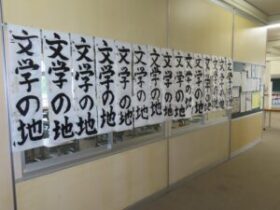 文学の地
文学の地
文学の地
文学の地
文学の地
文学の地
文学の地
文学の地
文学の地
文学の地
文学の地
文学の地
文学の地